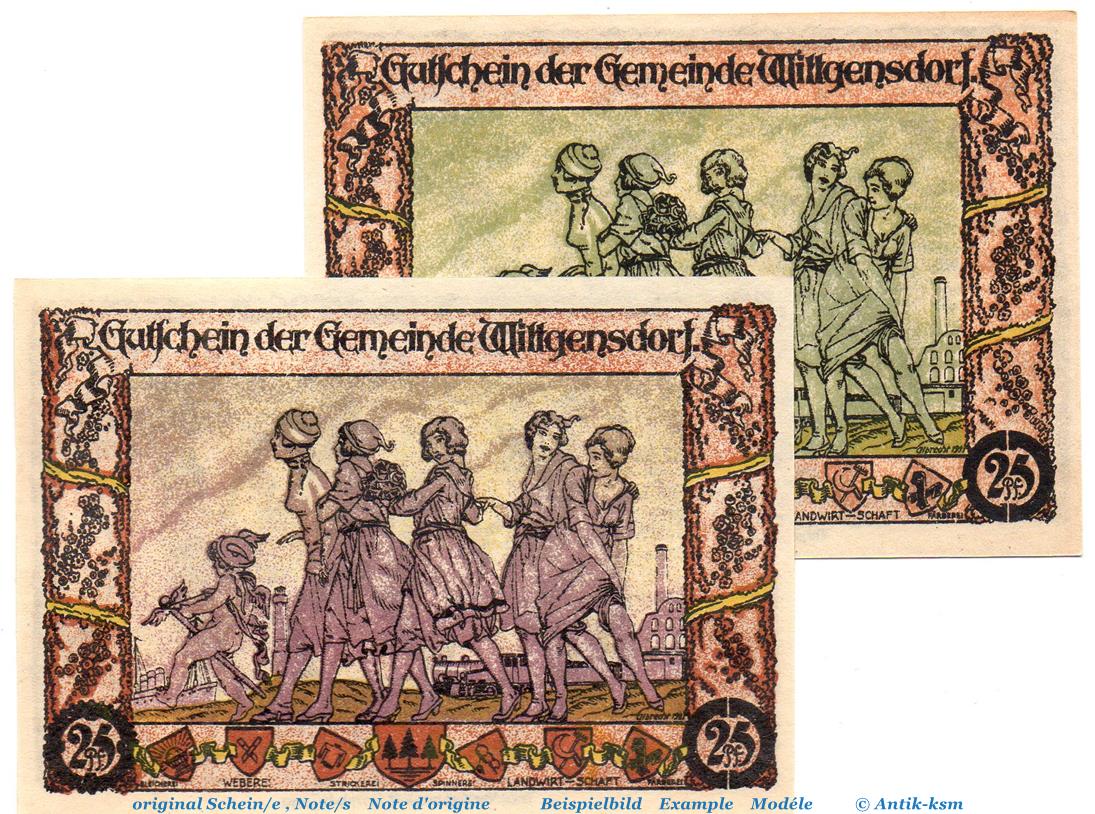 Gutschein der Gemeinde Wittgensdorf.
25 Pf
LANDWIRT—SCHAFT FÄRBEREI
Gutschein der Gemeinde Wittgensdorf.
25 Pf
25 Pf
BLEICHEREI WEBEREI STRICKEREI SPINNEREI LANDWIRT—SCHAFT FÄRBEREI
original Schein/e , Note/s Note d'origine Beispielbild Example Modéle © Antik-ksm